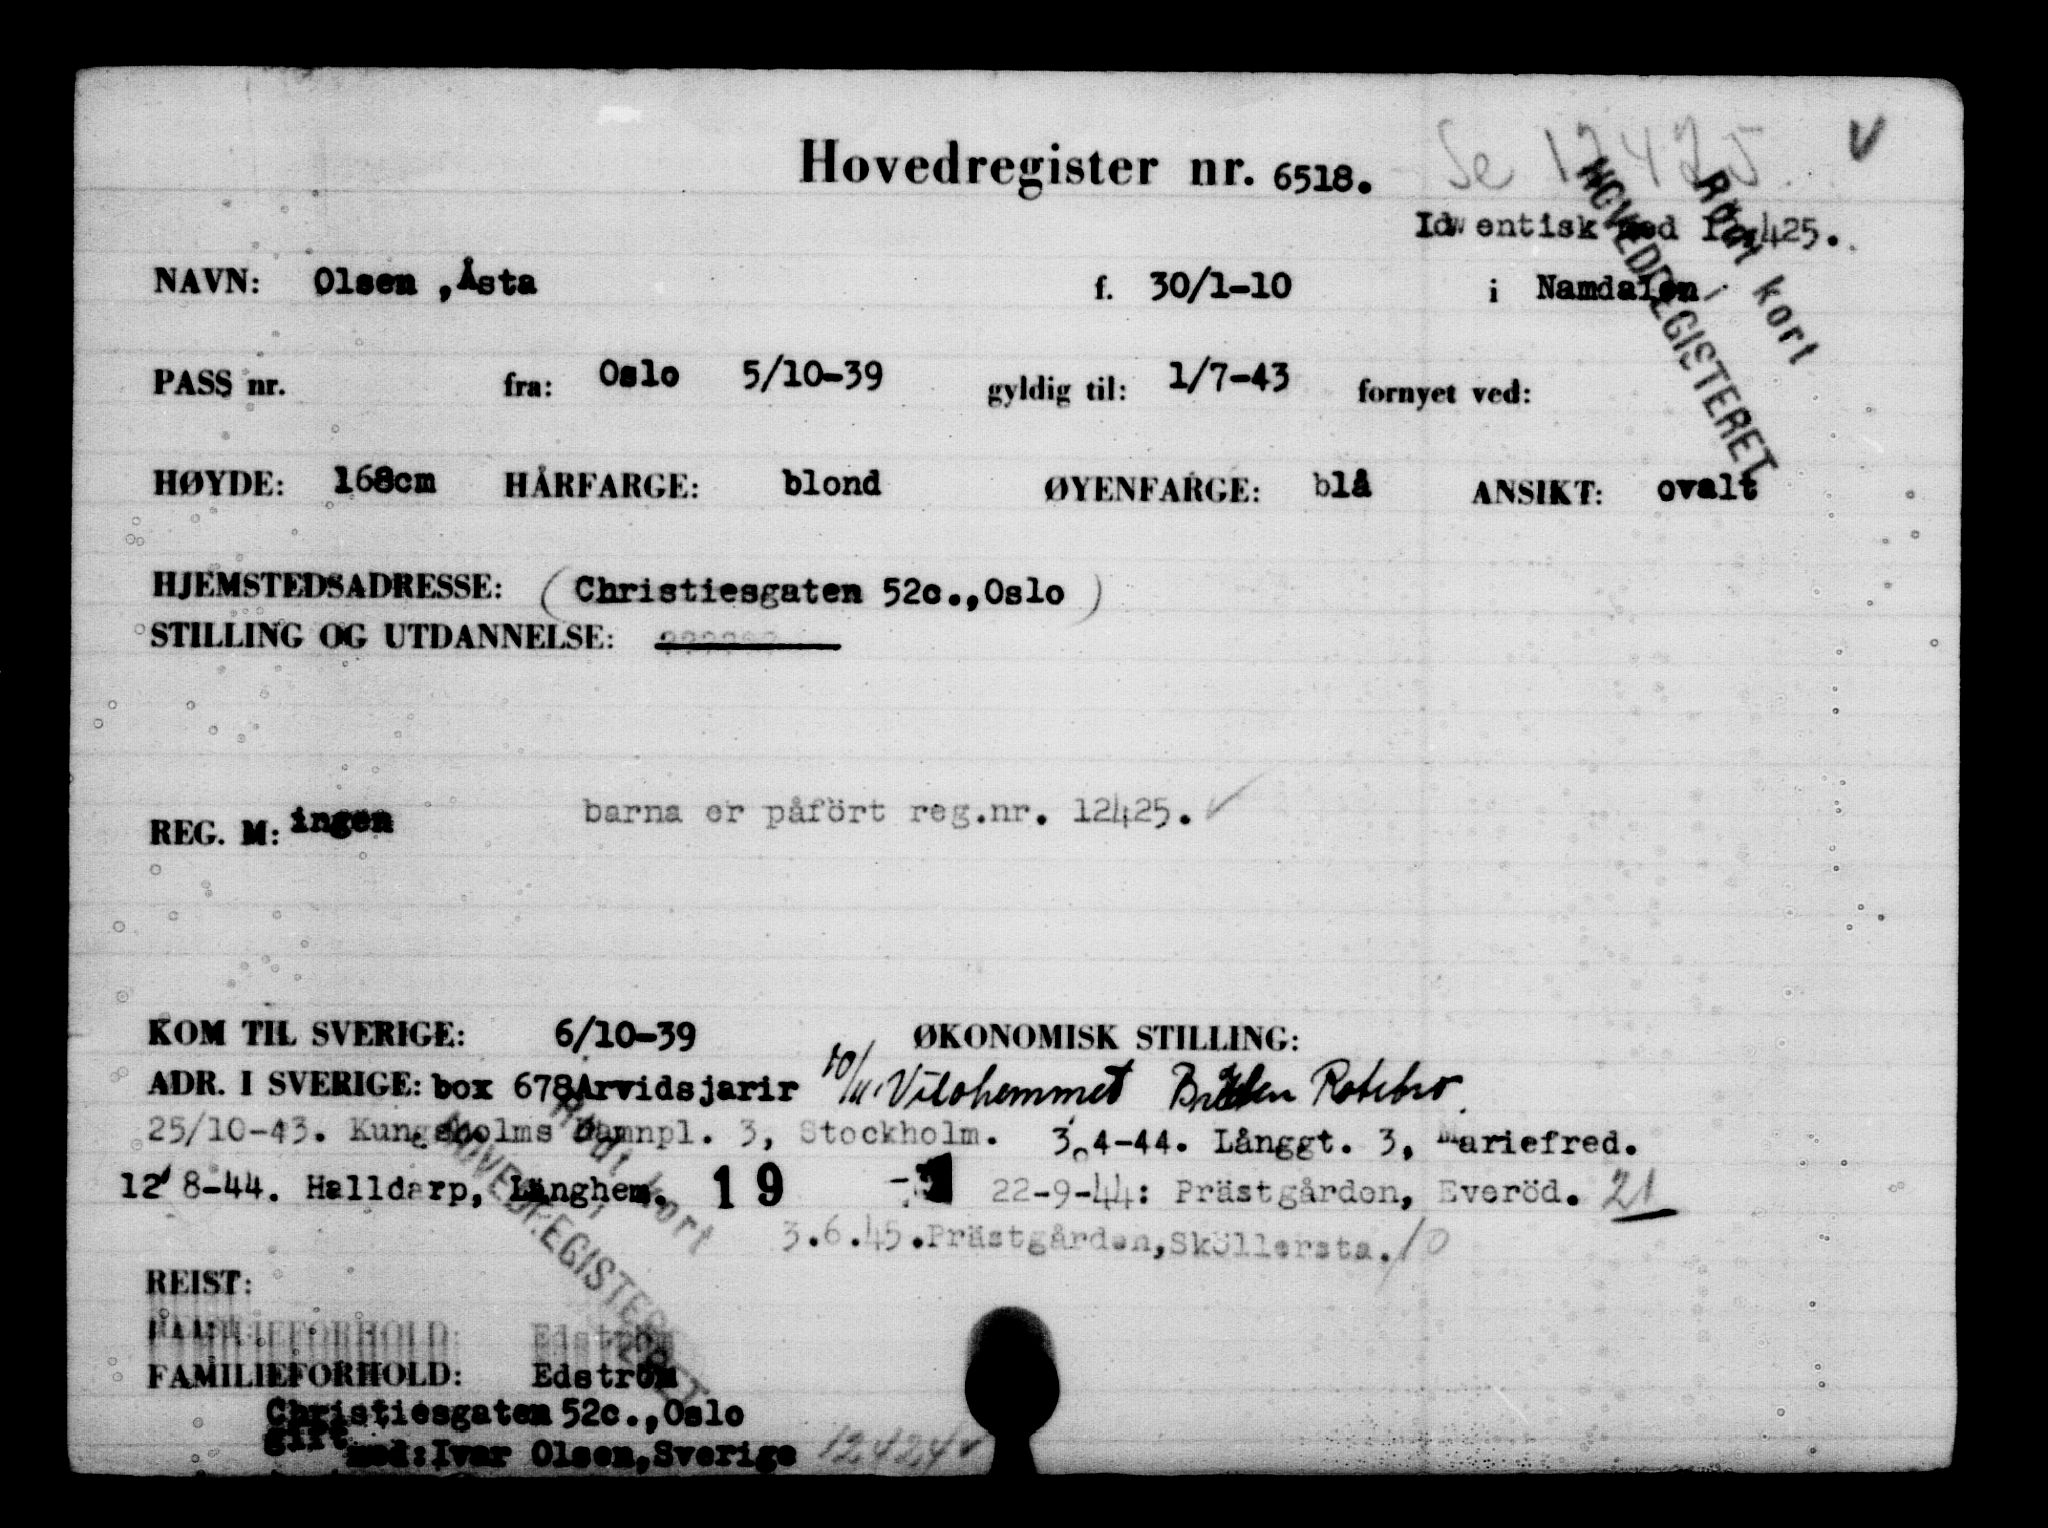 Hovedregister nr. 6518.
Se 12425 V
Idwentisk med 12425.
Rødt kort
i
HOVEDREGISTERET
NAVN: Olsen ,Åsta f. 30/1-10 i Namdalen
PASS nr. fra: Oslo 5/10-39 gyldig til: 1/7-43 fornyet ved:
HØYDE: 168cm HÅRFARGE: blond ØYENFARGE: blå ANSIKT: ovalt
HJEMSTEDSADRESSE: (Christiesgaten 52c.,Oslo)
STILLING OG UTDANNELSE:
REG. M: ingen barna er påfört reg.nr. 12425.
KOM TIL SVERIGE: 6/10-39 ØKONOMISK STILLING:
ADR. I SVERIGE: box 678Arvidsjarir 10/11 Vilohemmet Rotebro.
25/10-43. Kungsholms Hamnpl. 3, Stockholm. 3.4-44. Långgt. 3, Mariefred.
12' 8-44. Halldarp, Länghem. 19 22-9-44: Prästgården, Everöd. 21
3.6.45.Prästgården,Sköllersta./0
Rødt kort
i
HOVEDREGISTERET
REIST:
FAMILIEFORHOLD: Edström
FAMILIEFORHOLD: Edström
Christiesgaten 52c.,Oslo
gift
med:Ivar Olsen,Sverige 12424 v